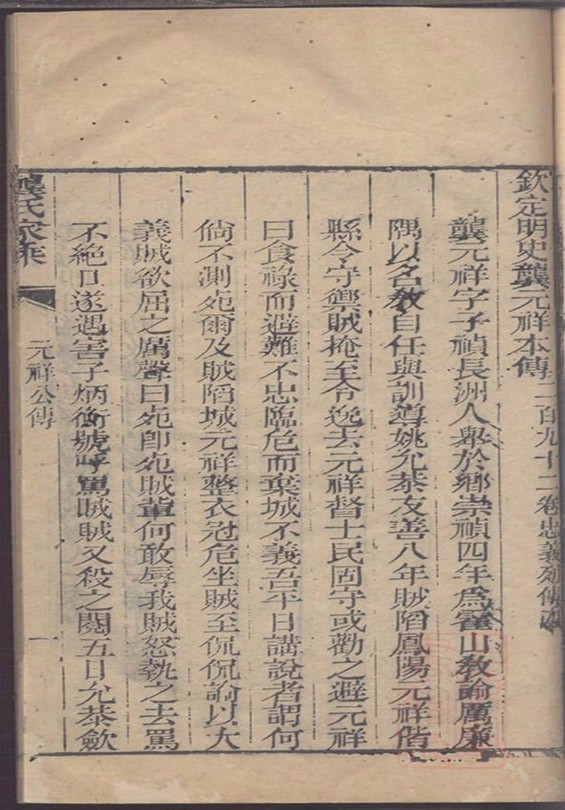 欽定明史龔元祥本傳 二百九十二卷忠義列傳四
龔元祥字子禎長洲人舉於鄉崇禎四年為霍山教諭厲廉
隅以名教自任與訓導姚允恭友善八年賊陷鳳陽元祥偕
縣令守禦賊掩至令逸去元祥督士民固守或勸之避元祥
曰食祿而避難不忠臨危而棄城不義吾平日講說者謂何
倘不測死爾及賊陷城元祥整衣冠危坐賊至侃侃諭以大
義賊欲屈之厲聲曰死即死賊輩何敢辱我賊怒執之去罵
不絕口遂遇害子炳衡號呼罵賊賊又殺之閱五日允恭歛
龔氏家乘
元祥公傳
一